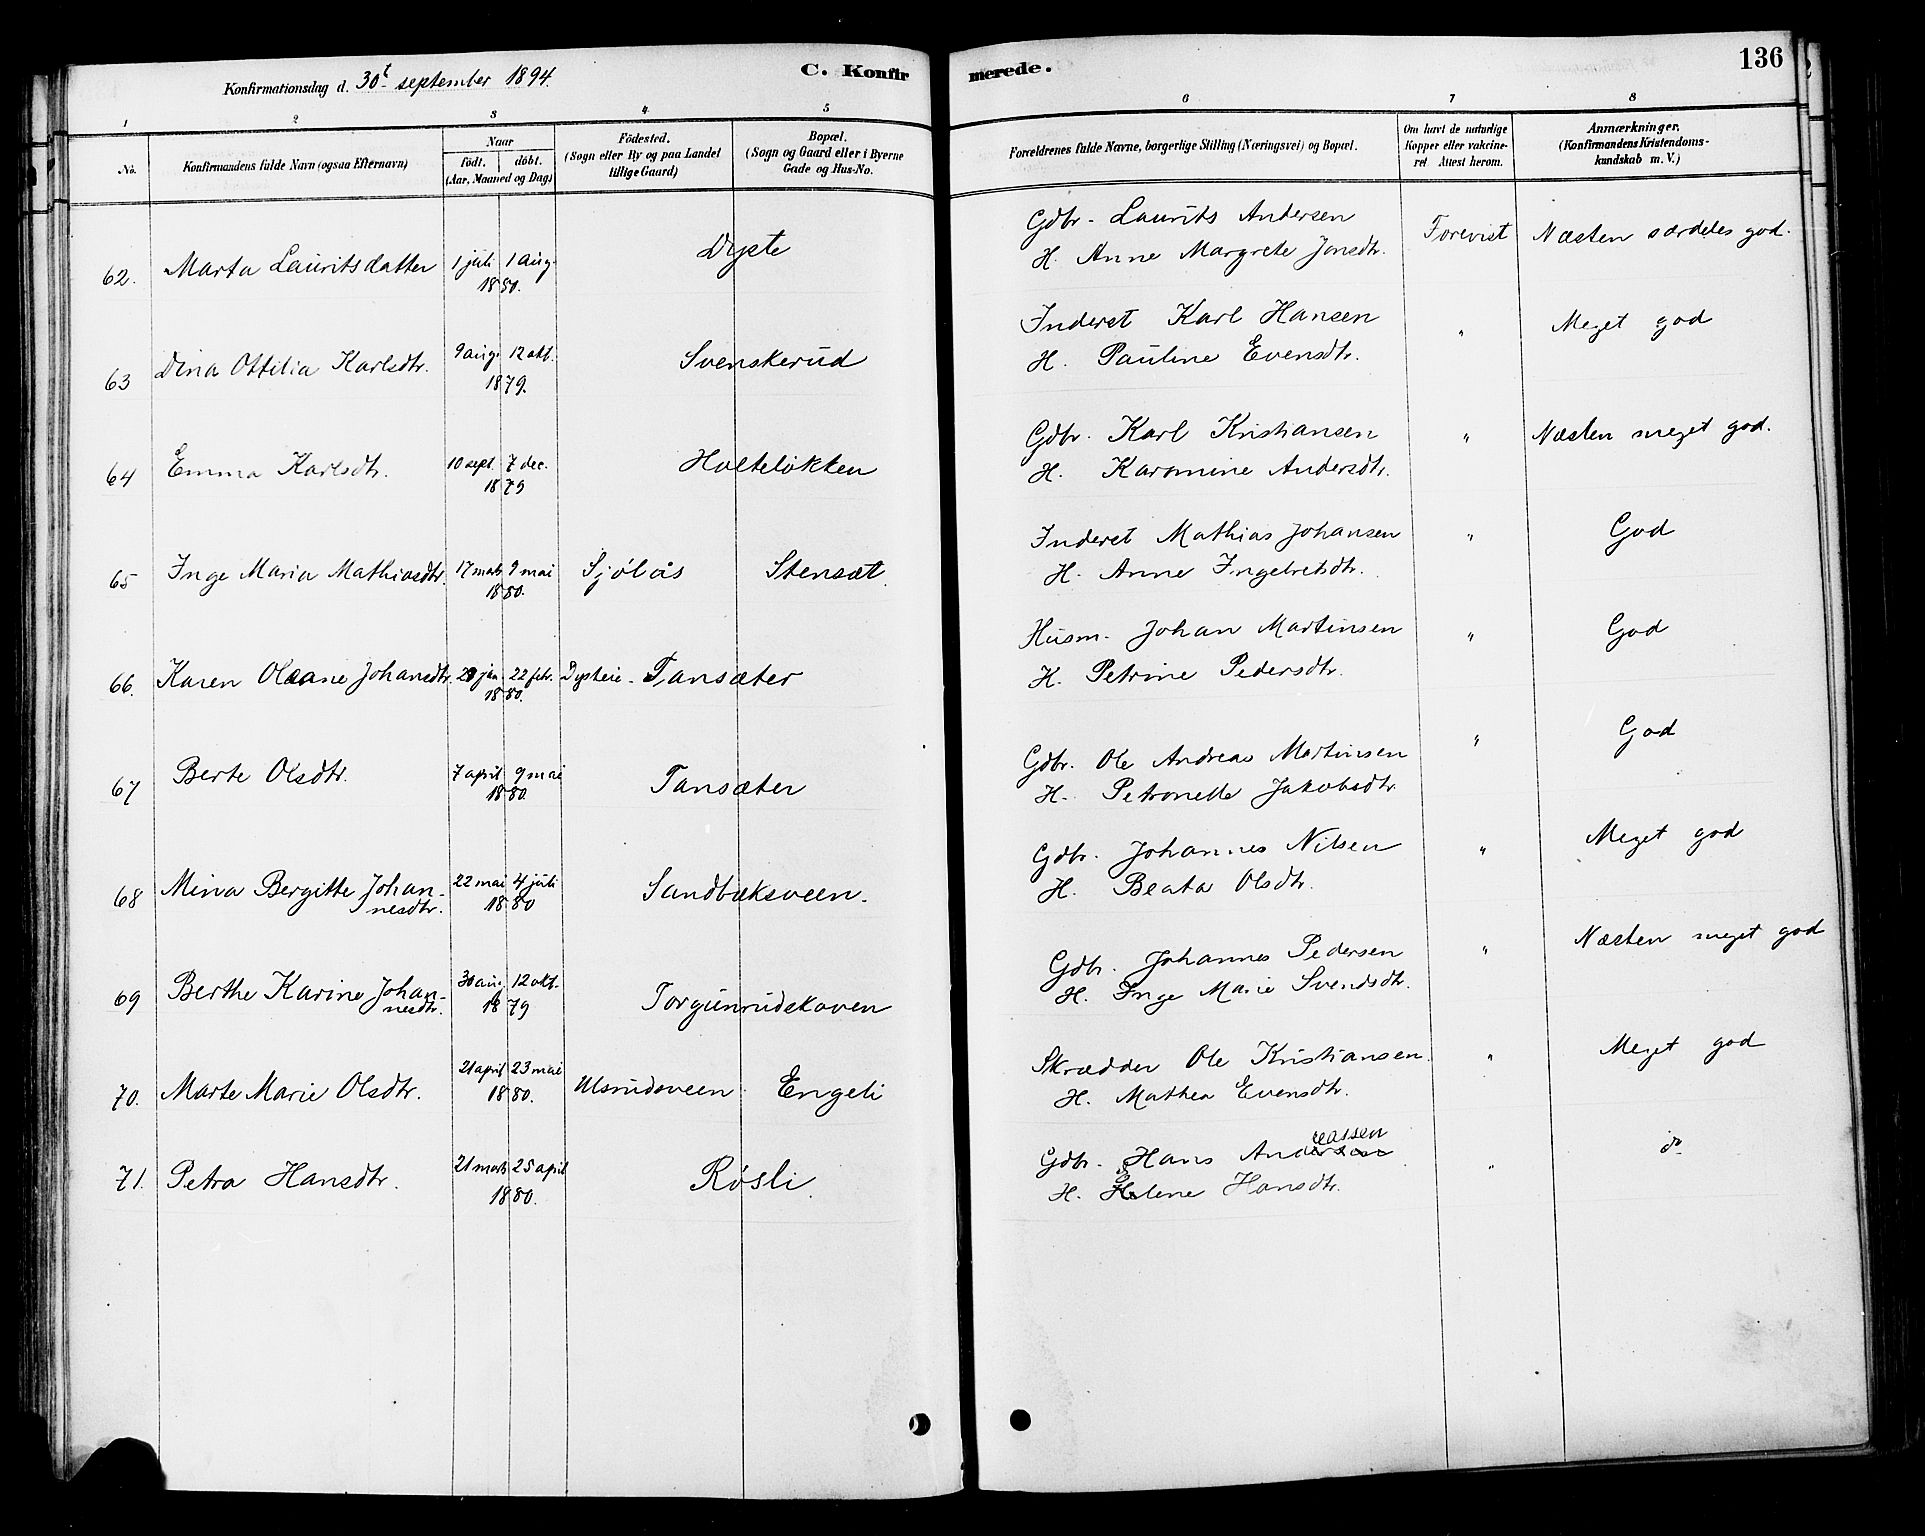 136
Konfirmationsdag d. 30t september 1894.
C. Konfirmerede.
1 2 3 4 5 6 7 8
No.
Konfirmandens fulde Navn (ogsaa Efternavn)
Naar
födt. döbt.
(Aar, Maaned og Dag)
Födested.
(Sogn eller By og paa Landet
tillige Gaard)
Bopæl.
(Sogn og Gaard eller i Byerne
Gade og Hus-No.
Forældrenes fulde Navne, borgerlige Stilling (Næringsvei) og Bopæl.
Om havt de naturlige
Kopper eller vakcine-
ret Attest herom.
Anmærkninger.
(Konfirmandens Kristendoms-
kundskab m. V.)
62. Marta Lauritsdatter 1 juli 1 aug. 1880. Dyste
Gdbr. Laurits Andersen Forevist Næsten særdeles god.
H. Anne Margrete Jonsdtr.
63 Dina Ottilia Karlsdtr. 9 aug. 12 okt. 1879. Svenskerud
Inderst Karl Hansen " Meget god
H. Pauline Evensdtr.
64 Emma Karlsdtr. 10 sept. 7 dec. 1879 Holteløkken
Gdbr. Karl Kristiansen " Næsten meget god.
H. Karomine Andersdtr.
65 Inge Maria Mathiasdtr. 17 marts 9 mai 1880. Sjølås Stensæt.
Inderst Mathias Johansen " God
H. Anne Ingebretsdtr.
66. Karen Oleane Johansdtr. jan. 22 febr. 1880. Dysteie - Tansæter
Husm. Johan Martinsen " God
H. Petrine Pedersdtr.
67 Berte Olsdtr. 7 april 9 mai 1880. Tansæter
Gdbr. Ole Andreas Martinsen " God
H. Petronelle Jakobsdtr.
68 Mina Bergitte Johan-
nesdtr. 22 mai 4 juli 1880 Sandbæksveen.
Gdbr. Johannes Nilsen " Meget god
H. Beata Olsdtr.
69 Berthe Karine Johan-
nesdtr. 30 aug 12 okt. 1879 Torgunrudskoven
Gdbr. Johannes Pedersen " Næsten meget god
H. Inge Marie Svendsdtr.
70. Marte Marie Olsdtr. 21 april 23 mai 1880. Ulsrudsveen Engeli
Skrædder Ole Kristiansen. " Meget god
H. Mathea Evensdtr.
71. Petra Hansdtr. 21 marts 25 april 1880. Røsli.
Gdbr. Hans Andreassen " do
H. Elene Hansdtr.